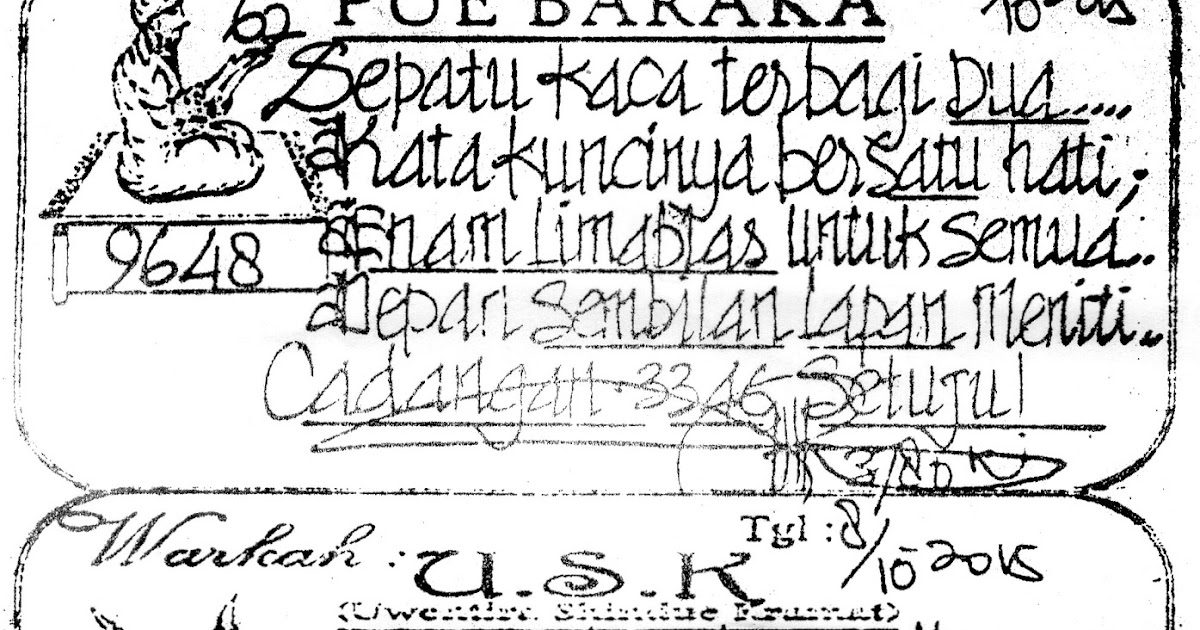 POE BARAKA
62
10-2015
Sepatu kaca terbagi Dua....
Kata kuncinya bersatu hati;
9648
Enam Limablas untuk semua.
Depari Sembilan Lapan Meniti..
Cadangan. 3346 Setuju!
Warkah : U.S.K
Tgl : 8/10-2015
(Uwentira Shindue Kramat)